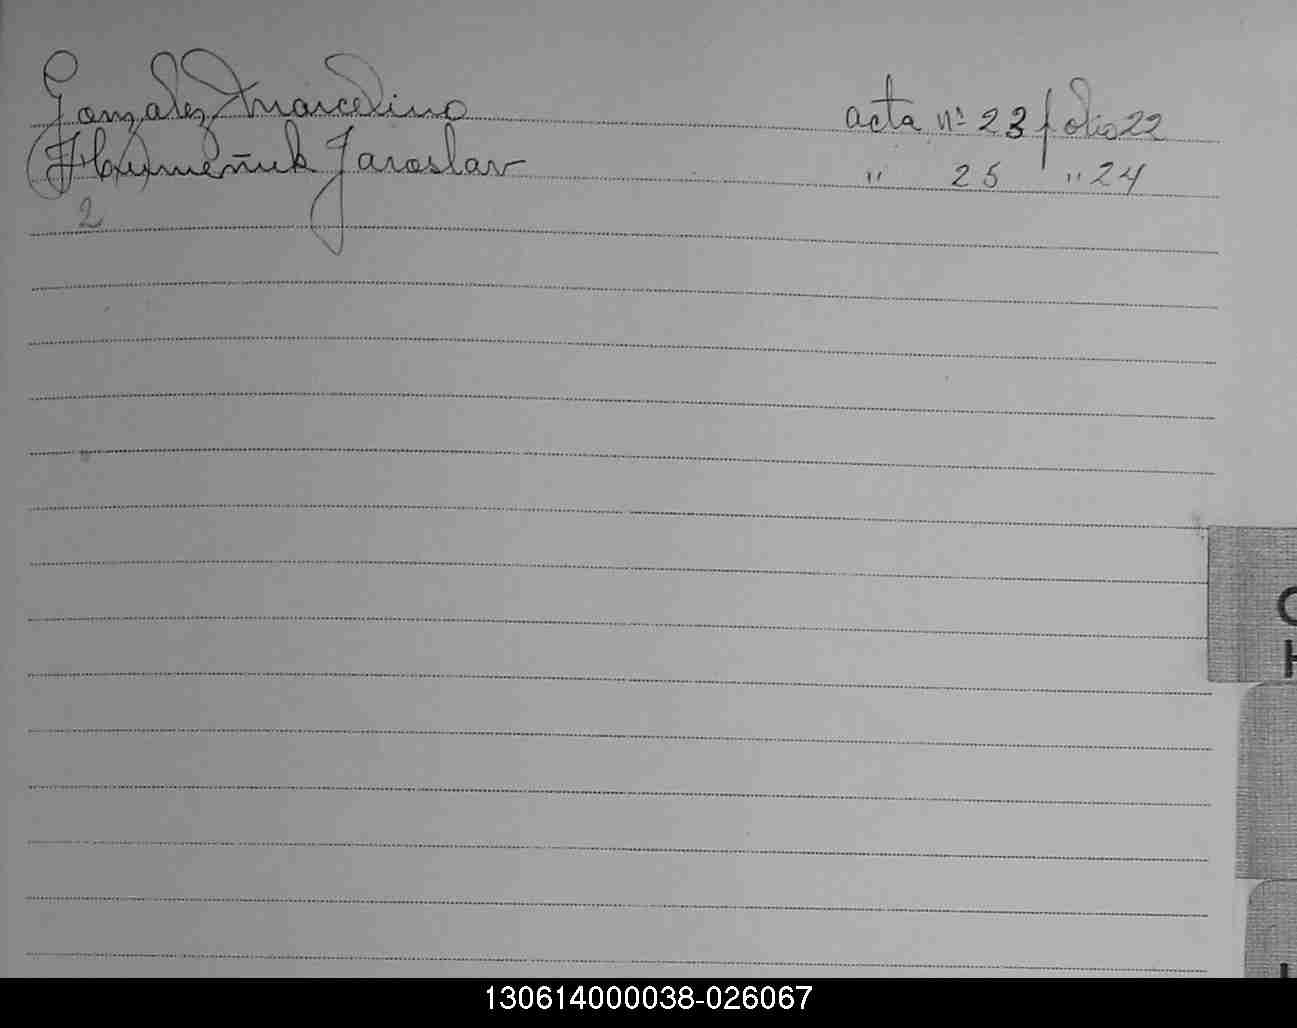 Gonzalez Marcelino acta nº 23 folio 22
(Humeñuk Jaroslav " 25 " 24
2
H
130614000038-026067